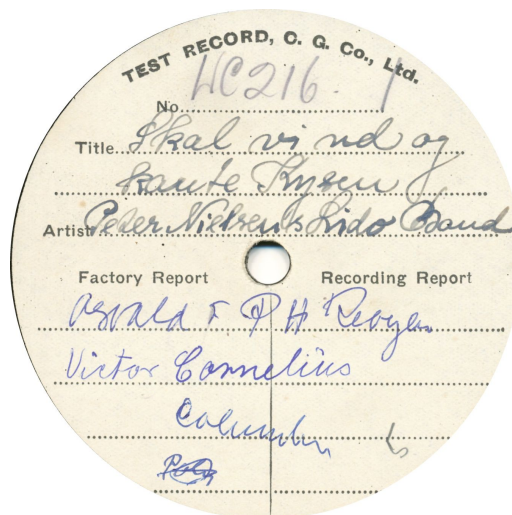 TEST RECORD, C. G. Co., Ltd.
No. WC216 1
Title Skal vi ud og
kante Kysen
Artist Peter Nielsen's Lido Band
Factory Report Recording Report
Osvald & P H
Victor Cornelius
Columbia